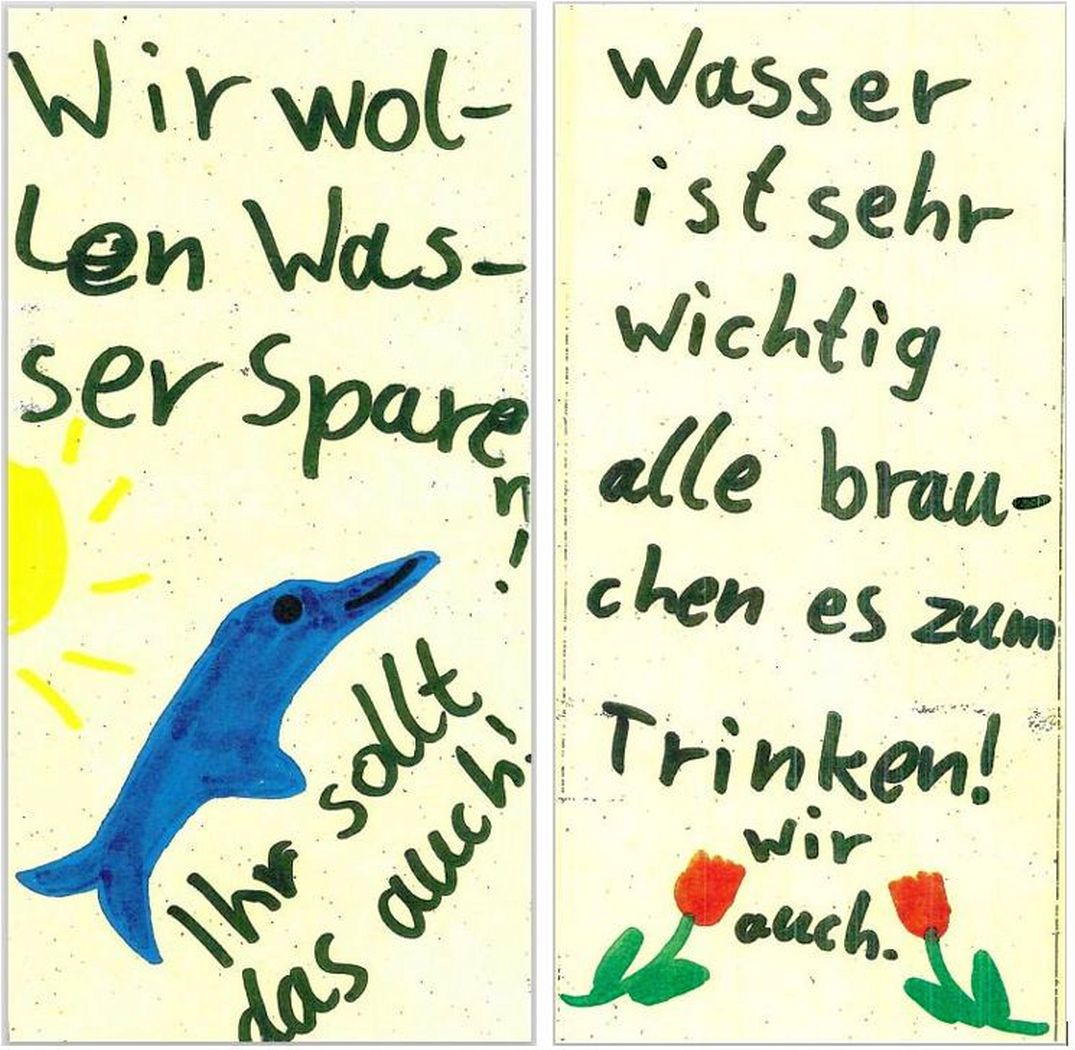 Wir wol-
len Was-
ser Spare
n
!
Ihr sollt
das auch!
Wasser
ist sehr
wichtig
alle brau-
chen es zum
Trinken!
wir
auch.